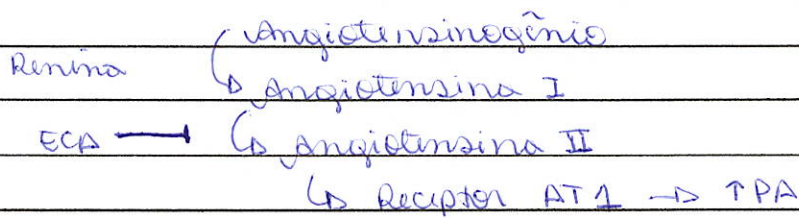 Angiotensinogênio
Renina
↳ Angiotensina I
ECA ⊣ ↳ Angiotensina II
↳ Receptor AT1 → ↑PA